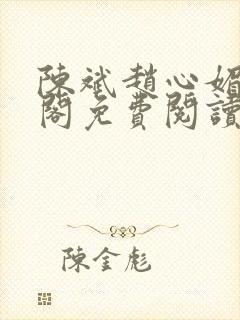 陳斌趙心媚
閣免費閱讀
陳金彪